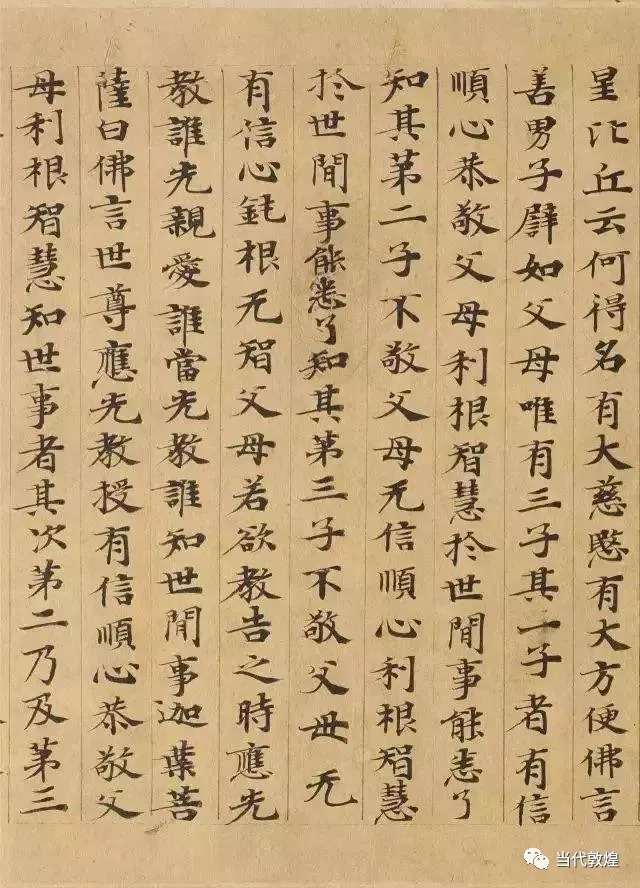 星比丘云何得名有大慈愍有大方便佛言
善男子譬如父母唯有三子其一子者有信
順心恭敬父母利根智慧於世間事能悉了
知其第二子不敬父母无信順心利根智慧
於世間事能悉了知其第三子不敬父母无
有信心鈍根无智父母若欲教告之時應先
教誰先親愛誰當先教誰知世間事迦葉菩
薩白佛言世尊應先教授有信順心恭敬父
母利根智慧知世事者其次第二乃及第三
当代敦煌